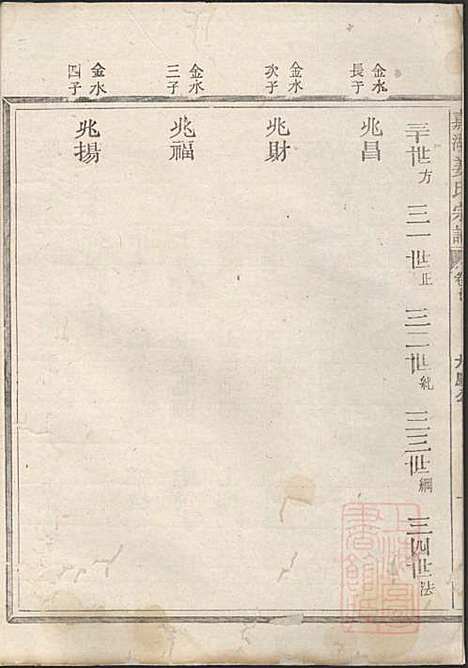 嘉湖姜氏宗譜
三十世方 三一世正 三二世紀 三三世綱 三四世法
金水長子
兆昌
金水次子
兆財
金水三子
兆福
金水四子
兆揚